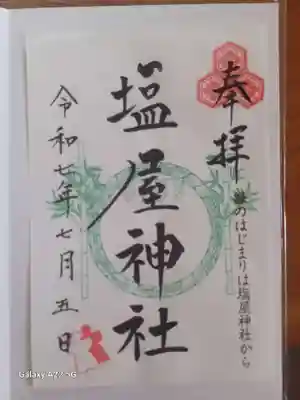 奉拝
塩のはじまりは塩屋神社から
塩屋神社
令和七年七月五日
Galaxy A27 5G